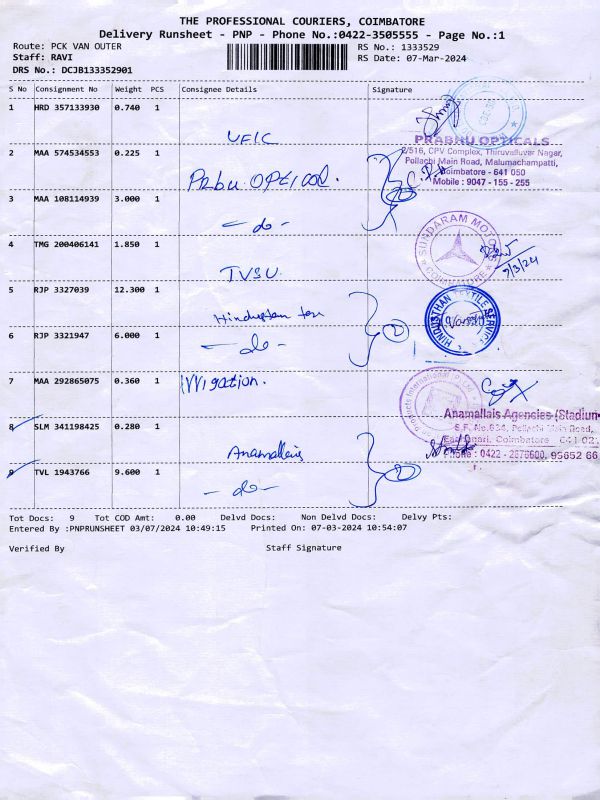 THE PROFESSIONAL COURIERS, COIMBATORE
Delivery Runsheet - PNP - Phone No.:0422-3505555 - Page No.:1
Route: PCK VAN OUTER
RS No.: 1333529
Staff: RAVI
RS Date: 07-Mar-2024
DRS No.: DCJB133352901
S No Consignment No Weight PCS Consignee Details Signature
1 HRD 357133930 0.740 1
PRABHU OPTICALS
2/516, CPV Complex, Thiruvalluvar Nagar,
2 MAA 574534553 0.225 1
Pollachi Main Road, Malumachampatti,
Coimbatore - 641 050
Mobile : 9047 - 155 - 255
Prbu OPTICAL.
3 MAA 108114939 3.000 1
-do-
SUNDARAM MOTORS
COIMBATORE
4 TMG 200406141 1.850 1
TVSU
7/3/24
5 RJP 3327039 12.300 1
Hindustan tex
HINDUSTHAN TEXTILE SERVICE
6 RJP 3321947 6.000 1
-do-
7 MAA 292865075 0.360 1
Irrigation.
Products International (P) Ltd
8 SLM 341198425 0.280 1
Anamallais Agencies (Stadium
S.F. No.634, Pollachi Main Road,
Eachanari, Coimbatore - 641 02
Phone : 0422 - 2676600, 95652 66
Anamallais
9 TVL 1943766 9.600 1
-do-
Tot Docs: 9 Tot COD Amt: 0.00 Delvd Docs: Non Delvd Docs: Delvy Pts:
Entered By :PNPRUNSHEET 03/07/2024 10:49:15 Printed On: 07-03-2024 10:54:07
Verified By Staff Signature